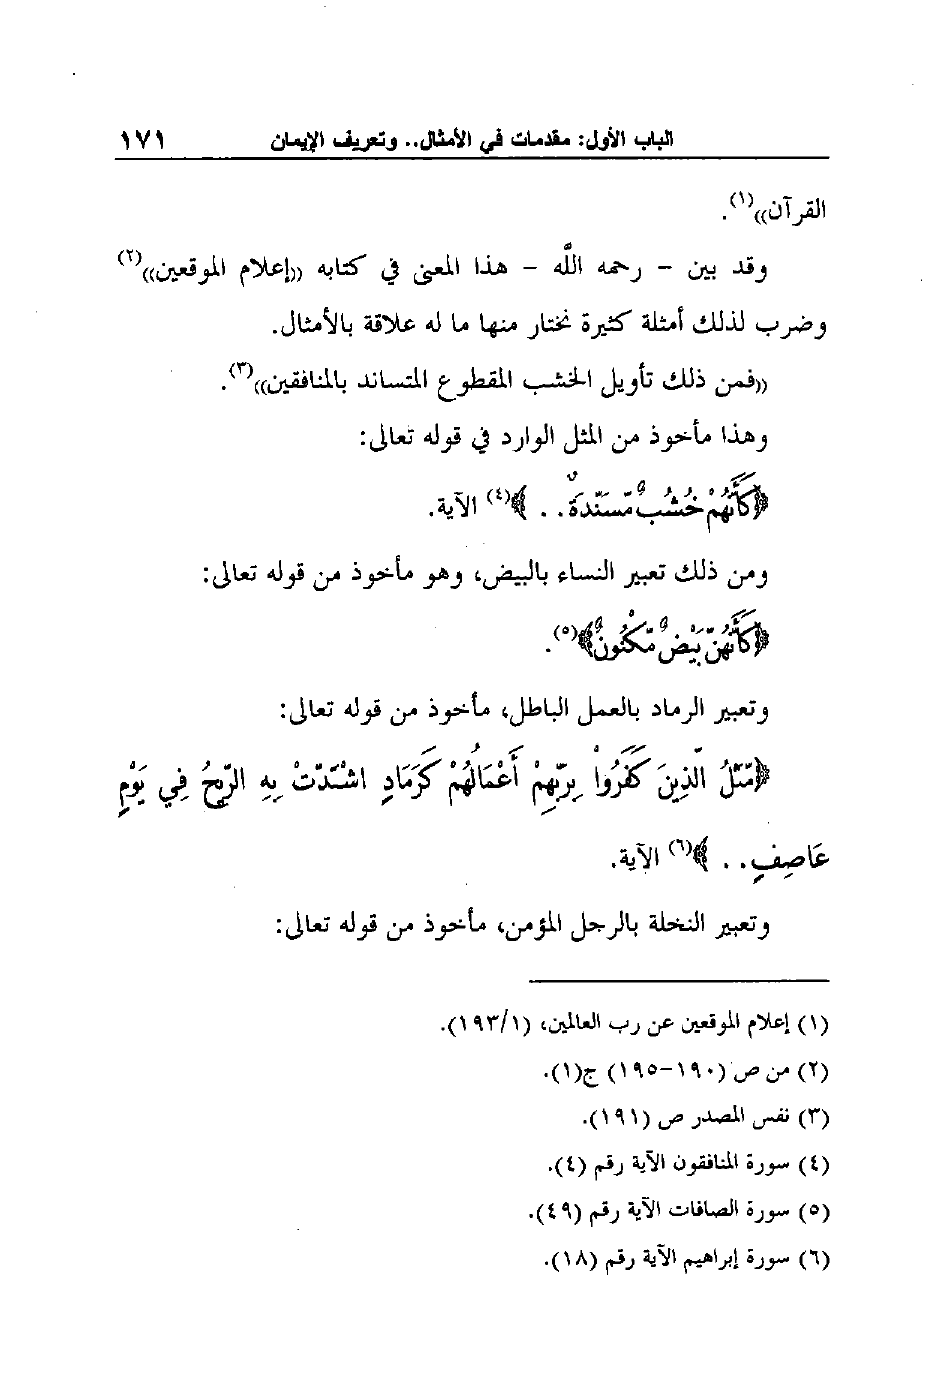 الباب الأول: مقدمات في الأمثال.. وتعريف الإيمان ١٧١
القرآن))(١).
وقد بين - رحمه اللَّه - هذا المعنى في كتابه ((إعلام الموقعين))(٢)
وضرب لذلك أمثلة كثيرة نختار منها ما له علاقة بالأمثال.
((فمن ذلك تأويل الخشب المقطوع المتساند بالمنافقين))(٣).
وهذا مأخوذ من المثل الوارد في قوله تعالى:
﴿كَأَنَّهُمْ خُشُبٌ مُّسَنَّدَةٌ. . ﴾(٤) الآية.
ومن ذلك تعبير النساء بالبيض، وهو مأخوذ من قوله تعالى:
﴿كَأَنَّهُنَّ بَيْضٌ مَّكْنُونٌ﴾(٥).
وتعبير الرماد بالعمل الباطل، مأخوذ من قوله تعالى:
﴿مَّثَلُ الَّذِينَ كَفَرُوا بِرَبِّهِمْ أَعْمَالُهُمْ كَرَمَادٍ اشْتَدَّتْ بِهِ الرِّيحُ فِي يَوْمٍ
عَاصِفٍ. . ﴾(٦) الآية.
وتعبير النخلة بالرجل المؤمن، مأخوذ من قوله تعالى:
(١) إعلام الموقعين عن رب العالمين، (١/١٩٣).
(٢) من ص (١٩٠-١٩٥) ج(١).
(٣) نفس المصدر ص (١٩١).
(٤) سورة المنافقون الآية رقم (٤).
(٥) سورة الصافات الآية رقم (٤٩).
(٦) سورة إبراهيم الآية رقم (١٨).